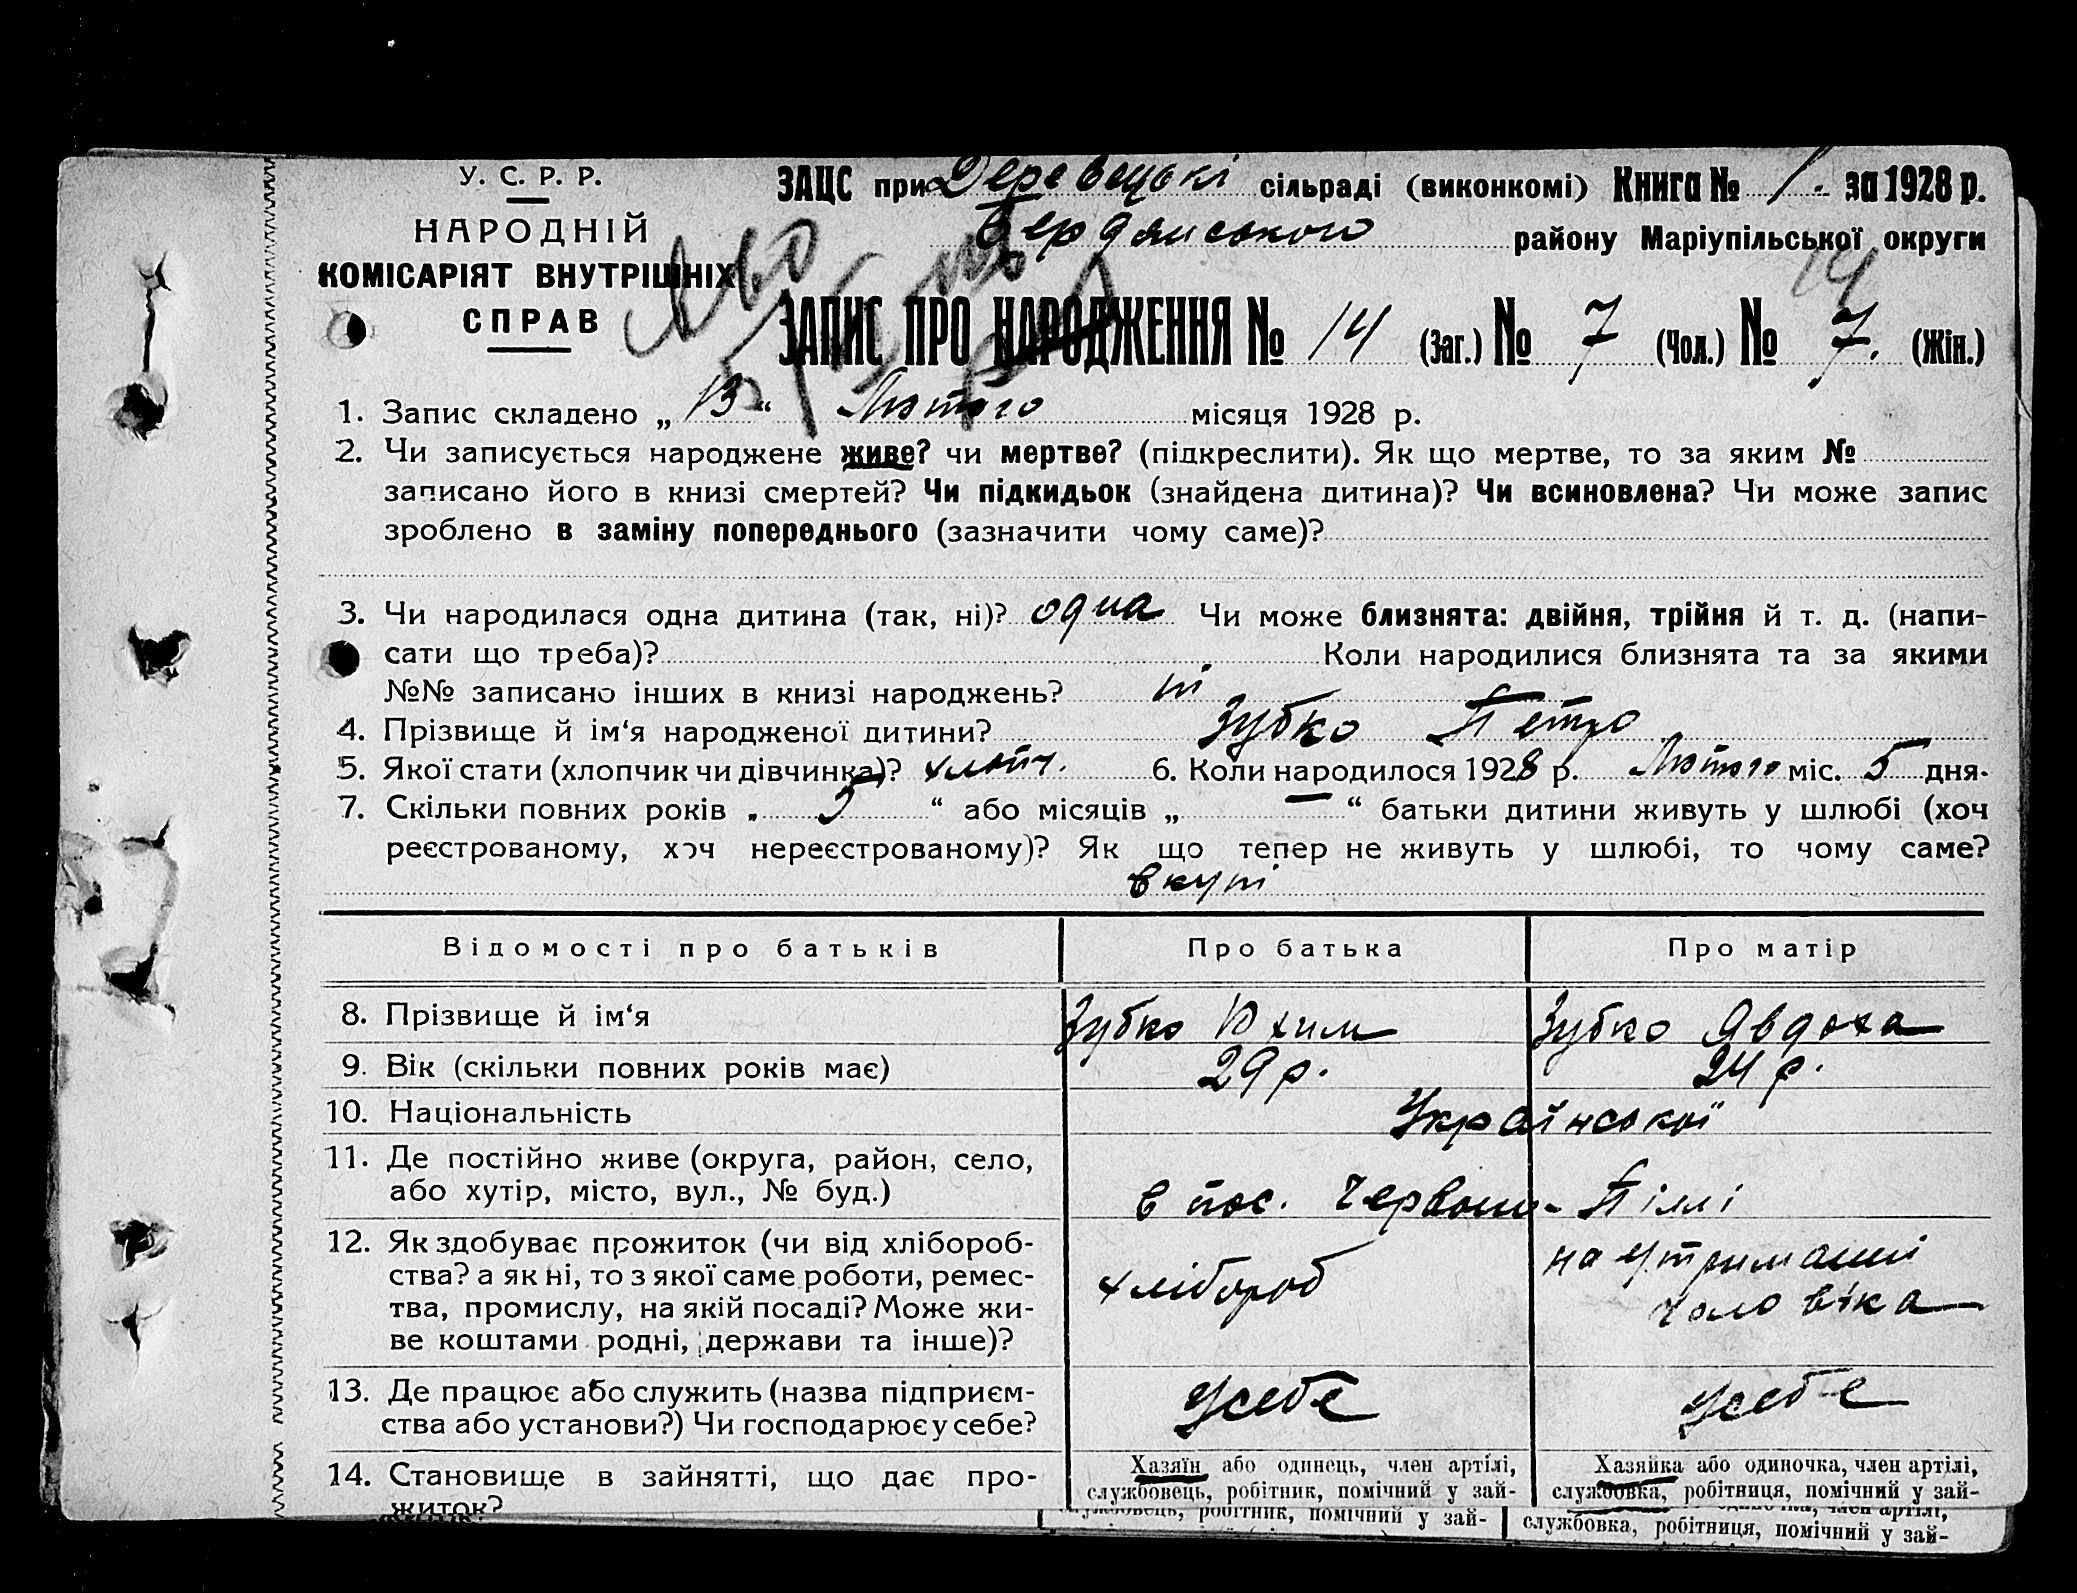 У. С. Р. Р.
НАРОДНІЙ
КОМІСАРІЯТ ВНУТРІШНІХ
СПРАВ
ЗАЦС при Деревецькі сільраді (виконкомі) Книга № 1. за 1928 р.
Бердянського району Маріупільської округи
14
ЗАПИС ПРО НАРОДЖЕННЯ № 14 (Заг.) № 7 (Чол.) № 7. (Жін.)
1. Запис складено „ 13 “ Лютого місяця 1928 р.
2. Чи записується народжене живе? чи мертве? (підкреслити). Як що мертве, то за яким №
записано його в книзі смертей? Чи підкидьок (знайдена дитина)? Чи всиновлена? Чи може запис
зроблено в заміну попереднього (зазначити чому саме)?
3. Чи народилася одна дитина (так, ні)? одна Чи може близнята: двійня, трійня й т. д. (напи-
сати що треба)? Коли народилися близнята та за якими
№№ записано інших в книзі народжень? ні
4. Прізвище й ім‘я народженої дитини? Зубко Петро
5. Якої стати (хлопчик чи дівчинка)? хлопч. 6. Коли народилося 1928 р. Лютого міс. 5 дня.
7. Скільки повних років „ 5 “ або місяців „ — “ батьки дитини живуть у шлюбі (хоч
реєстрованому, хоч нереєстрованому)? Як що тепер не живуть у шлюбі, то чому саме?
вкупі
Відомості про батьків Про батька Про матір
8. Прізвище й ім‘я Зубко Юхим Зубко Явдоха
9. Вік (скільки повних років має) 29 р. 24 р.
10. Національність Української
11. Де постійно живе (округа, район, село,
або хутір, місто, вул., № буд.) в пос. Червоно-Піллі
12. Як здобуває прожиток (чи від хлібороб-
ства? а як ні, то з якої саме роботи, ремес-
тва, промислу, на якій посаді? Може жи-
ве коштами родні, держави та інше)? хлібороб на утриманні
чоловіка
13. Де працює або служить (назва підприєм-
ства або установи?) Чи господарює у себе? усебе усебе
14. Становище в зайнятті, що дає про-
житок?
Хазяїн або одинець, член артілі,
службовець, робітник, помічний у зай-
Хазяйка або одиночка, член артілі,
службовка, робітниця, помічний у зай-
службовець, робітник, помічний у зай-
службовка, робітниця, помічний у зай-